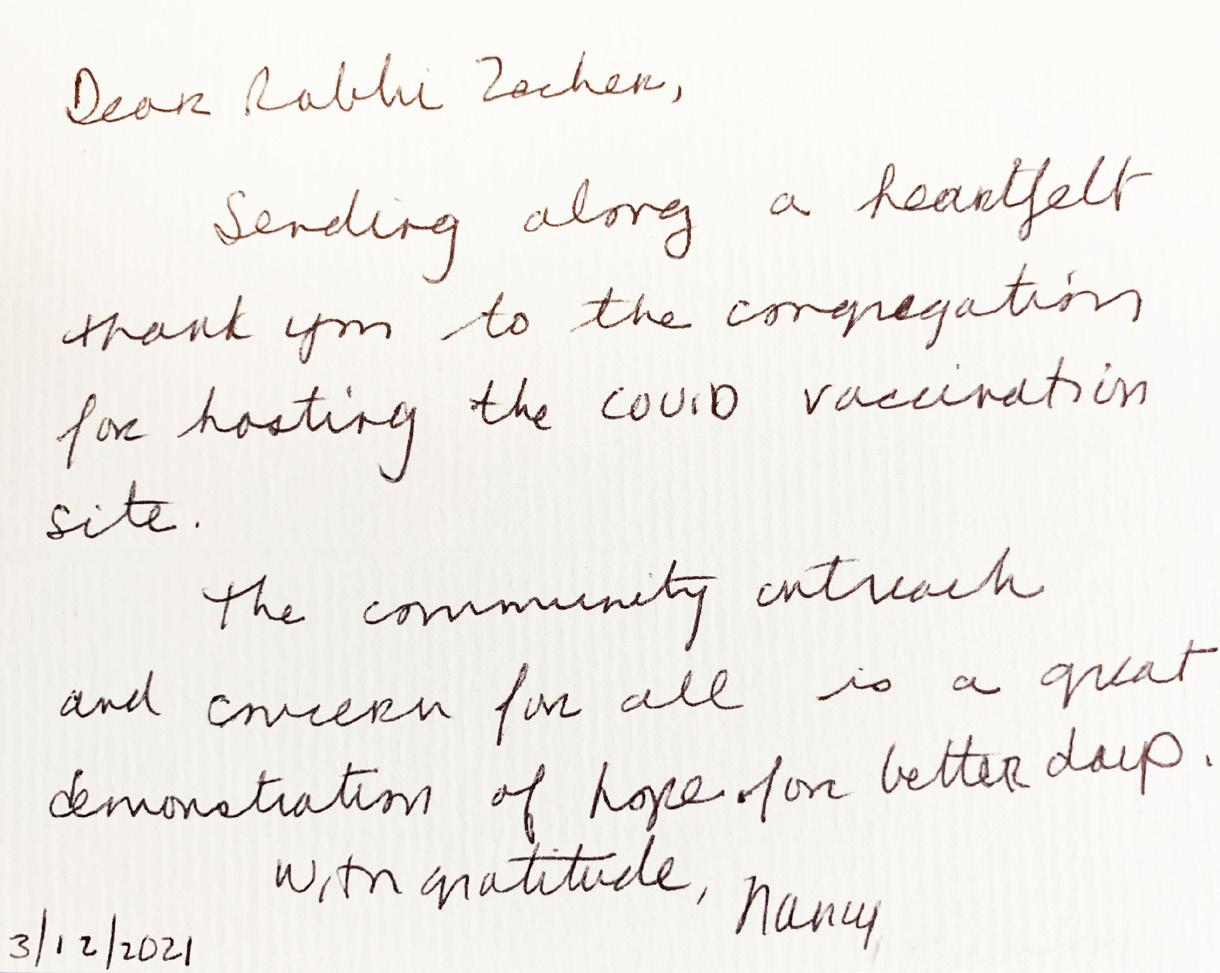 Dear Rabbi Zecher,
Sending along a heartfelt
thank you to the congregation
for hosting the COVID vaccination
site.
The community outreach
and concern for all is a great
demonstration of hope for better days.
With gratitude, Nancy
3/12/2021